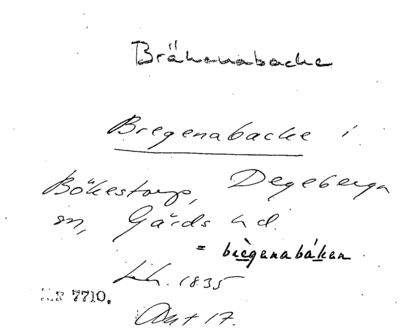 Brähenabacke
Bregenabacke i
Bökestorp, Degeberga
sn, Gärds hd.
= brègenabáken
Lh. 1835
7710.
Akt 17.